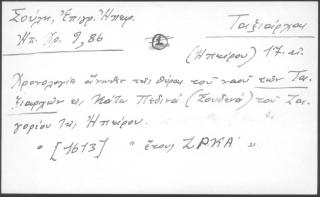 Σούλη, Ἐπιγρ. Ἠπείρ. Ταξιάρχαι
Ἠπ. Χρ. 9, 86 (1) (Ἠπείρου) 17. αἰ.
Χρονολογία ἄνωθεν τῆς θύρας τοῦ ναοῦ τῶν Τα-
ξιαρχῶν εἰς Κάτω Πεδινά (Σουδενά) τοῦ Ζα-
γορίου τῆς Ἠπείρου.
" [1613] " ἔτους ΖΡΚΑ´ "